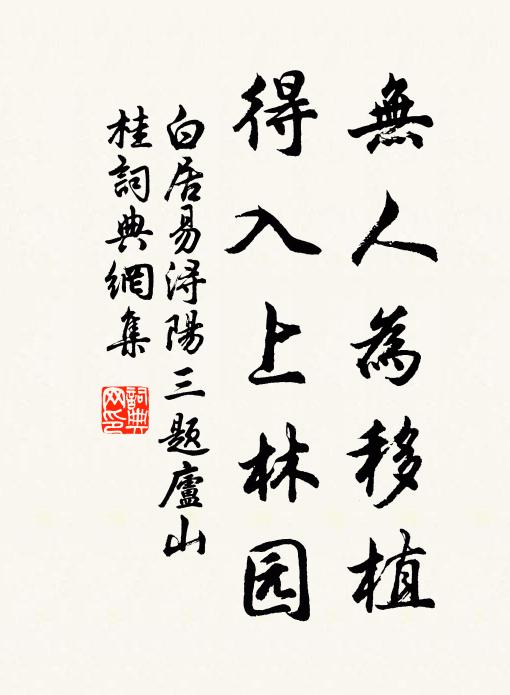 無人為移植
得入上林园
白居易浔陽三题廬山
桂詞典網集
詞典网印